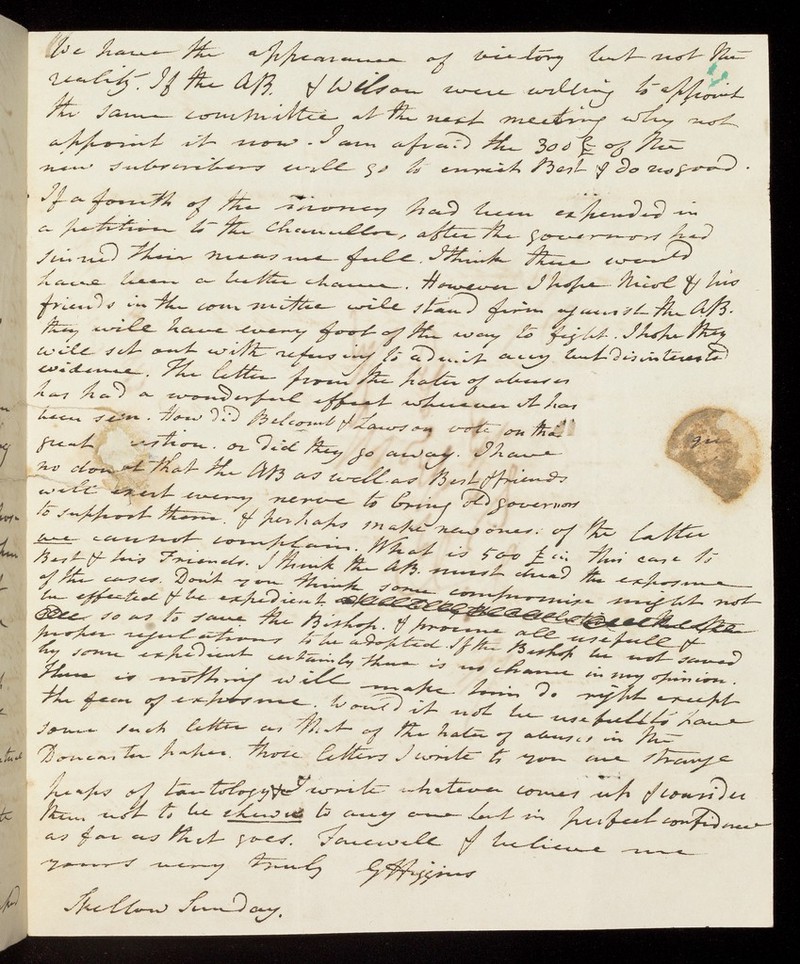 We have the appearance of victory but not the
reality. If the AB. & Wilson were willing to appoint
the same committee at the next meeting why not
appoint it now. I am afraid the 300£ of the
new subscribers will go to enrich Best & do no good.
If a fourth of the money had been expended in
a petition to the Chancellor, after the governors had
sinned their measure full. I think there would
have been a better chance. However I hope Nicol & his
friends in the committee will stand firm against the AB.
they will have every foot of the way to fight. I hope they
will set out with refusing to admit any but disinterested
evidence. The letter from the hater of abuses
has had a wonderful effect wherever it has
been seen. How did Belcomb & Lawson vote on the
great ustion. or did they go away. I have
no doubt that the AB as well as Best & friends
will exert every nerve to bring old governors
to support them. & perhaps make new ones: of the latter
we cannot complain. What is 500£ in this case to
Best & his Friends. I think the AB. must dread the exposure
of the cases. Don't you think some compromise might not
be effected & be expedient
so as to save the Bishop. & procure all usefull &
proper regulations to be adopted. If the Bishop be not saved
by some expedient certainly there is no chance in my opinion.
There is nothing will make him do right except
the fear of exposure. Would it not be usefull to have
some such letter as that of the hater of abuses in the
Doncaster paper. Those letters I write to you are strange
heaps of tautology & I write whatever comes up & consider
them not to be shewn to any one but in perfect confidence
as far as that goes. Farewell & believe me
yours very truly G Higgins
Skellow Sunday.